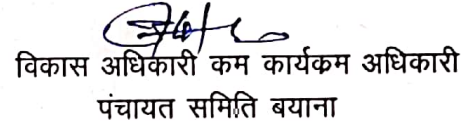 विकास अधिकारी कम कार्यक्रम अधिकारी
पंचायत समिति बयाना